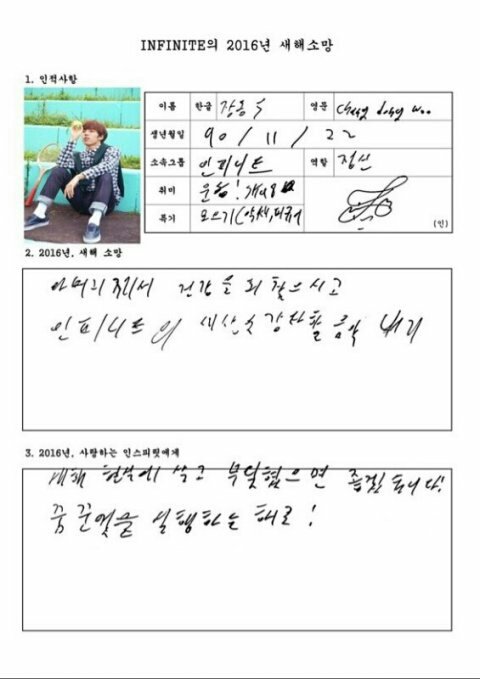 INFINITE의 2016년 새해소망
1. 인적사항
이름 한글 장동우 영문 Chang dong woo
생년월일 90 / 11 / 22
소속그룹 인피니트 역할 정신
취미 운동!
특기 모으기(악세,피규어
(인)
2. 2016년, 새해 소망
아버지께서 건강을 되찾으시고
인피니트의 새산 음악 내기
3. 2016년, 사랑하는 인스피릿에게
새해 현실에 살고 부딪혔으면 좋겠습니다!
꿈꾼 것을 실행하는 해로!